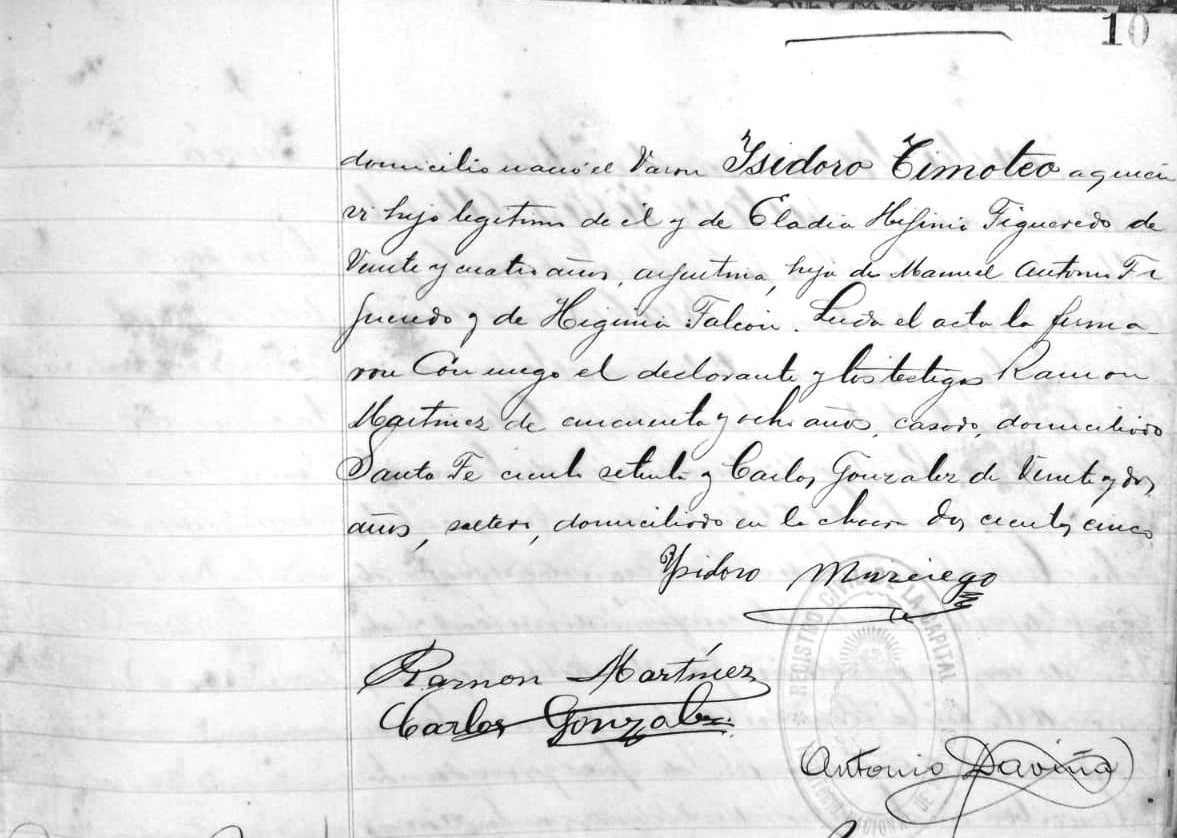 10
domicilio nació el varon Isidoro Timoteo a quien
vi hijo legitimo de él y de Eladia Hifinia Figueredo de
veinte y cuatro años, argentina, hija de Manuel Antonio Fi
gueredo y de Higinia Falcón. Leida el acta la firma-
ron Conmigo el declarante y los testigos Ramon
Martinez de cincuenta y ocho años, casado, domiciliado
Santa Fe ciento setenta y Carlos Gonzalez de veinte y dos
años, soltero, domiciliado en la chacra dos cientos cinco
Ysidoro Murciego
Ramon Martínez
Carlos Gonzalez
Antonio Daviña
REGISTRO CIVIL DE LA CAPITAL